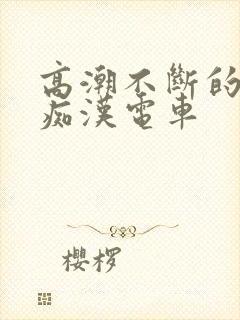 高潮不斷的
痴漢電車
櫻桜